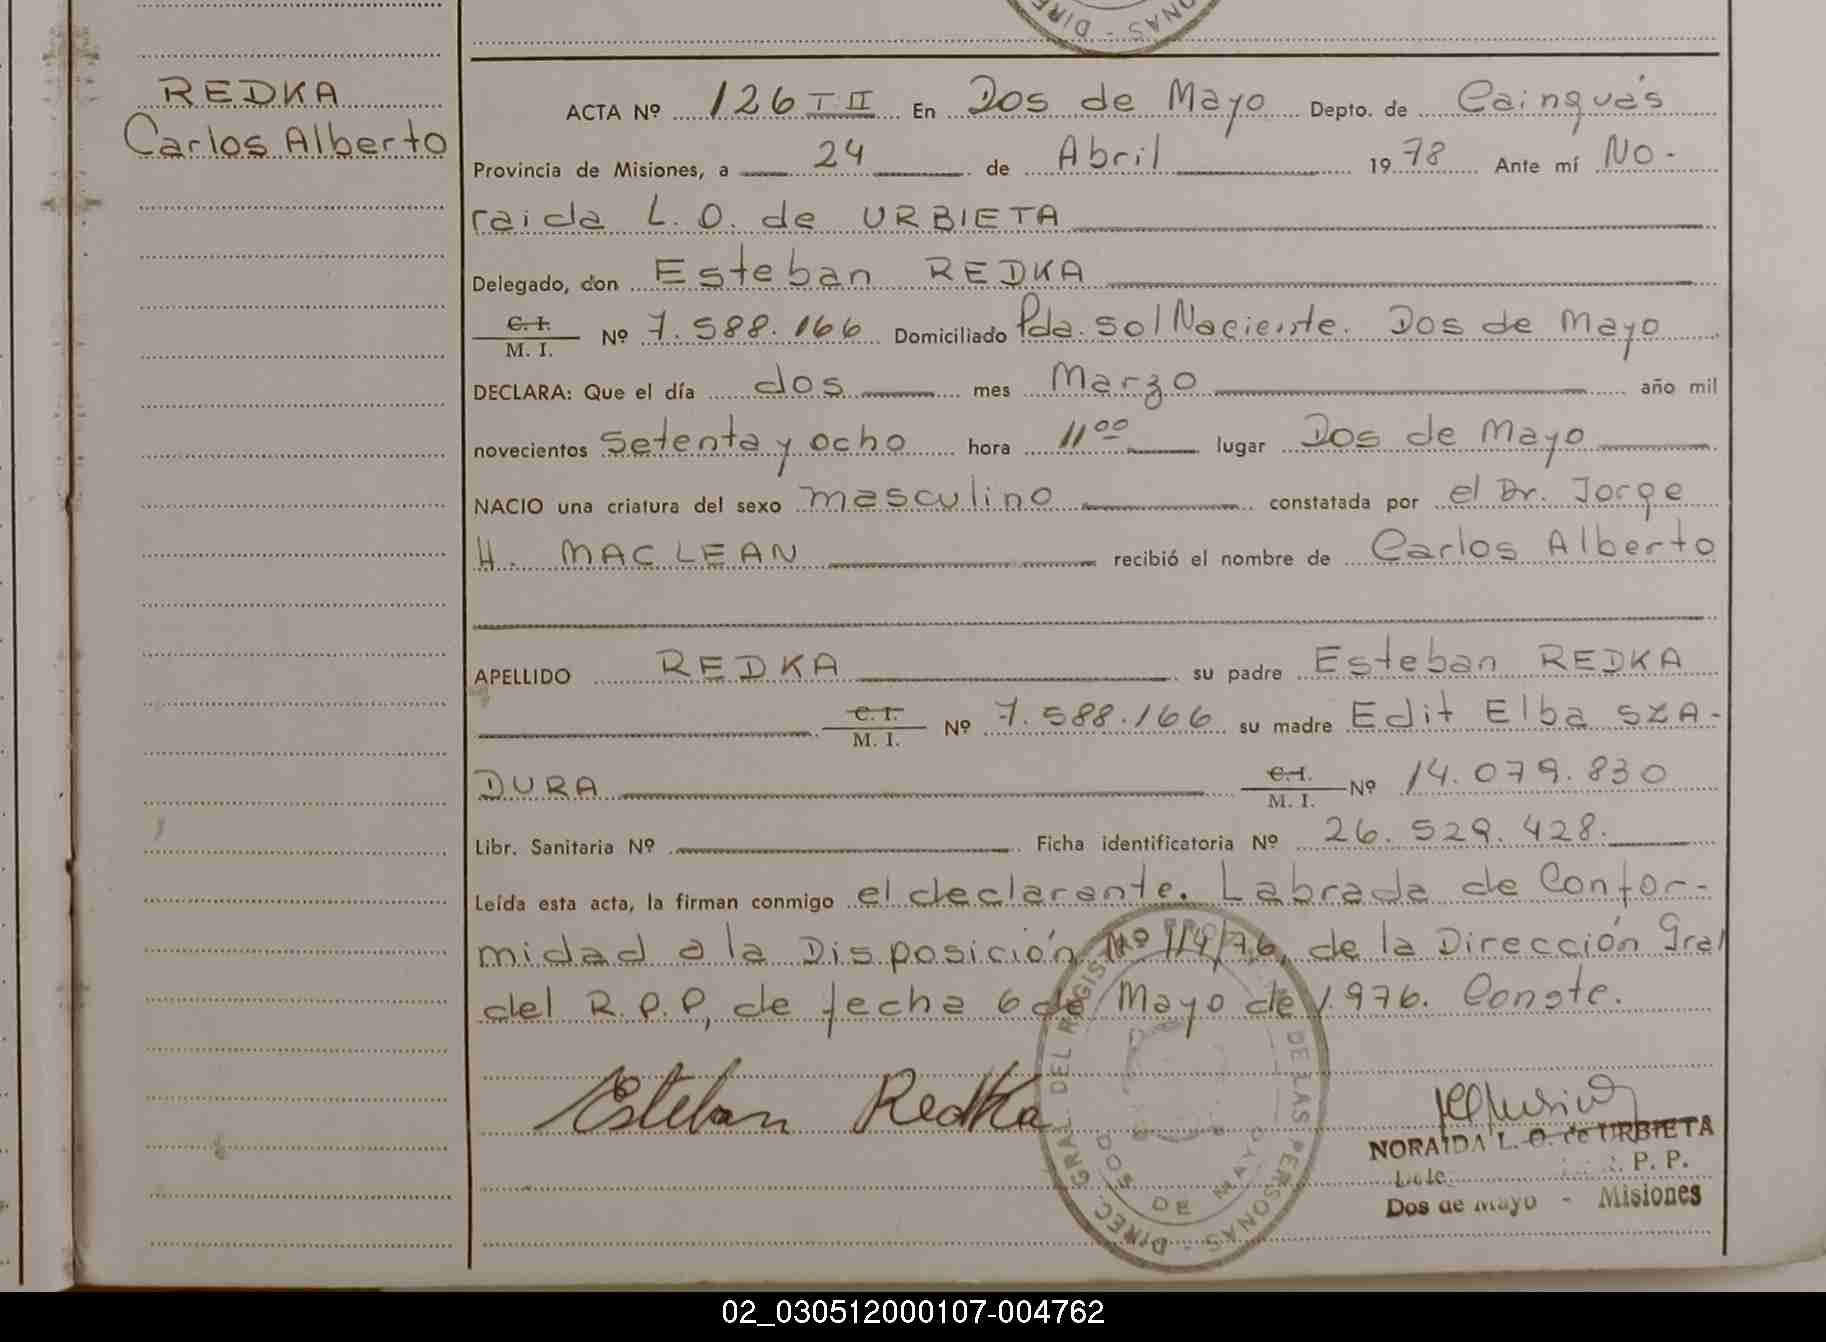 REDKA
Carlos Alberto
ACTA Nº 126 T II En Dos de Mayo Depto. de Cainguás
Provincia de Misiones, a 24 de Abril 1978 Ante mí NO-
raida L. O. de URBIETA
Delegado, don Esteban REDKA
C. I.
M. I. Nº 7.588.166 Domiciliado Pda. Sol Naciente. Dos de Mayo
DECLARA: Que el día dos mes Marzo año mil
novecientos setenta y ocho hora 11 00 lugar Dos de Mayo
NACIO una criatura del sexo masculino constatada por el Dr. Jorge
H. MAC LEAN recibió el nombre de Carlos Alberto
APELLIDO REDKA su padre Esteban REDKA
C. I.
M. I. Nº 7.588.166 su madre Edit Elba SZA-
DURA C.I.
M. I. Nº 14.079.830
Libr. Sanitaria Nº Ficha identificatoria Nº 26.529.428.
Leída esta acta, la firman conmigo el declarante. Labrada de Confor-
midad a la Disposición Nº 114/76, de la Dirección Gral
del R.P.P, de fecha 6 de Mayo de 1.976. Conste.
Esteban Redka
DIREC. GRAL. DEL REGIST DE LAS PERSONAS
DOS DE MAYO
NORAIDA L. O. de URBIETA
P. P.
Dos de Mayo - Misiones
DIRE ONAS
02_030512000107-004762